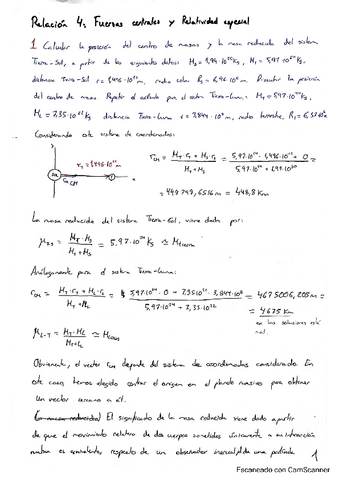 Relación 4: Fuerzas centrales y Relatividad especial
1 Calcular la posición del centro de masas y la masa reducida del sistema
Tierra-Sol, a partir de los siguientes datos: Ms = 1,99·10³⁰ Kg, MT = 5,97·10²⁴ Kg,
distancia Tierra-Sol r = 1,496·10¹¹ m, radio solar Rs = 6,96·10⁸ m. Discutir la posición
del centro de masas. Repetir el cálculo para el sistema Tierra-Luna: MT = 5,97·10²⁴ Kg,
ML = 7,35·10²² Kg distancia Tierra-Luna r = 3,844·10⁸ m, radio terrestre, RT = 6,37·10⁶
Considerando este sistema de coordenadas:
y
rT = 1,496·10¹¹ m
SOL
CM
x
rCM = (MT·rT + Ms·rs) / (MT + Ms) = (5,97·10²⁴ · 1,496·10¹¹ + 0) / (5,97·10²⁴ + 1,99·10³⁰) =
= 448798,6516 m = 448,8 Km
La masa reducida del sistema Tierra-Sol, viene dada por:
= (MT · Ms) / (MT + Ms) = 5,97·10²⁴ Kg ≃
Análogamente para el sistema Tierra-Luna:
rCM = (MT·rT + ML·rL) / (MT + ML) = (5,97·10²⁴ · 0 + 7,35·10²² · 3,844·10⁸) / (5,97·10²⁴ + 7,35·10²²) = 4675006,205 m =
= 4675 Km
en las soluciones está
mal.
μL-T = (MT·ML) / (MT + ML) ≃
Obviamente, el vector rCM depende del sistema de coordenadas considerado. En
este caso, hemos decidido centrar el origen en el planeta masivo para obtener
un vector cercano a él.
El significado de la masa reducida viene dado a partir
de que el movimiento relativo de dos cuerpos sometidos únicamente a su interacción
mutua es equivalente, respecto de un observador inercial, al de una partícula
1
Escaneado con CamScanner